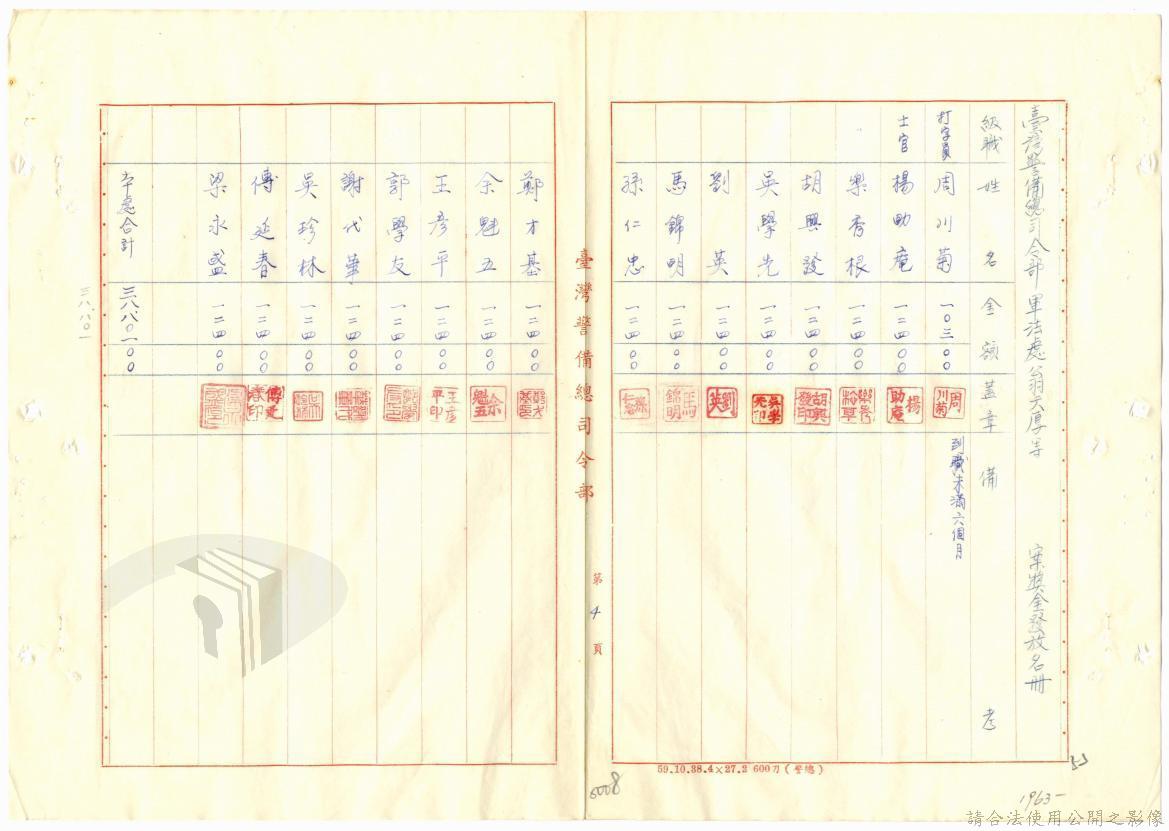 臺灣警備總司令部 軍法處翁天厚等 案獎金發放名冊
級職 姓名 金額 蓋章 備考
打字員 周川菊 一〇三〇〇 周川菊 到職未滿六個月
士官 楊助庵 一二四〇〇 楊助庵
樂秀根 一二四〇〇
胡興發 一二四〇〇 胡興發印
吳學先 一二四〇〇 吳學先印
劉英 一二四〇〇 劉英
馬錦明 一二四〇〇 馬錦明
孫仁忠 一二四〇〇
臺灣警備總司令部
第4頁
鄭才基 一二四〇〇
余魁五 一二四〇〇 余魁五
王彥平 一二四〇〇 王彥平印
郭學友 一二四〇〇
謝代華 一二四〇〇
吳珍林 一二四〇〇
傅延春 一二四〇〇 傅延春印
梁永盛 一二四〇〇
本處合計 三八八〇一〇〇
三八八〇一
59.10.38.4×27.2 600刀(警總)
0008
53
1963-
請合法使用公開之影像